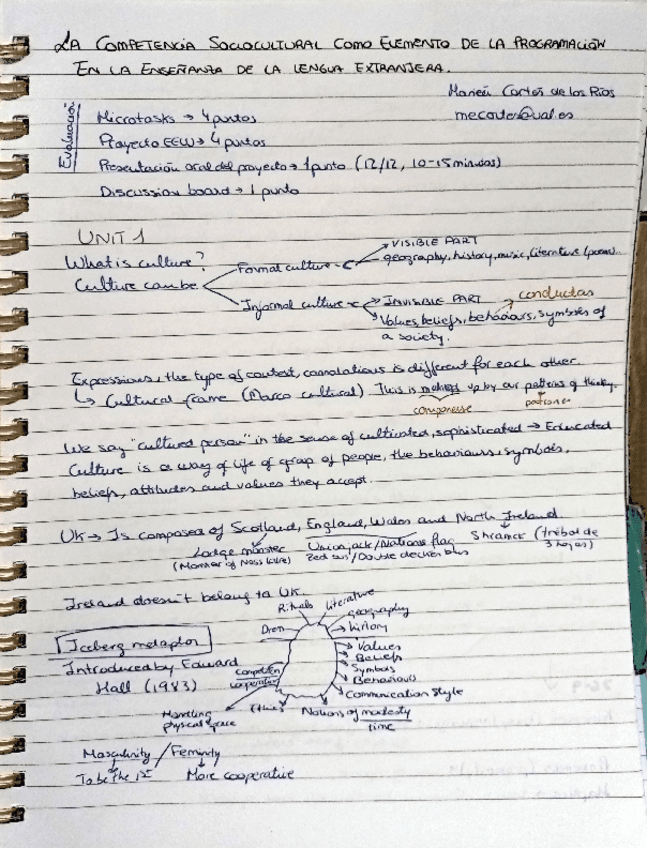 LA COMPETENCIA SOCIOCULTURAL COMO ELEMENTO DE LA PROGRAMACIÓN
EN LA ENSEÑANZA DE LA LENGUA EXTRANJERA.
Cortés de los Ríos
Evaluación
Microtasks → 4 puntos
Proyecto EEW → 4 puntos
Presentación oral del proyecto → 1 punto (12/12, 10-15 minutos)
Discussion board → 1 punto
UNIT 1
What is culture?
Culture can be
Formal culture
VISIBLE PART
geography, history, music, literature
Informal culture
INVISIBLE PART
conductas
Values, beliefs, behaviours, symbols of
a society.
Expressions, the type of context, connotations is different for each other.
↳ Cultural frame (Marco cultural) This is up by our patterns of thinking.
componerse
patrones
We say "cultured person" in the sense of cultivated, sophisticated → Educated
Culture is a way of life of group of people, the behaviours, symbols,
beliefs, attitudes and values they accept.
UK → Is composed of Scotland, England, Wales and North Ireland.
Union jack/Nations flag
(trébol de
3 hojas)
Double decker bus
Ireland doesn't belong to UK.
Iceberg metaphor
Introduced by Edward
Hall (1983)
Rituals
literature
geography
history
Values
Beliefs
Symbols
Behaviours
Communication style
Notions of modesty
time
Ethics
Handling
physical space
Masculinity / Feminity
To be the 1st
More cooperative